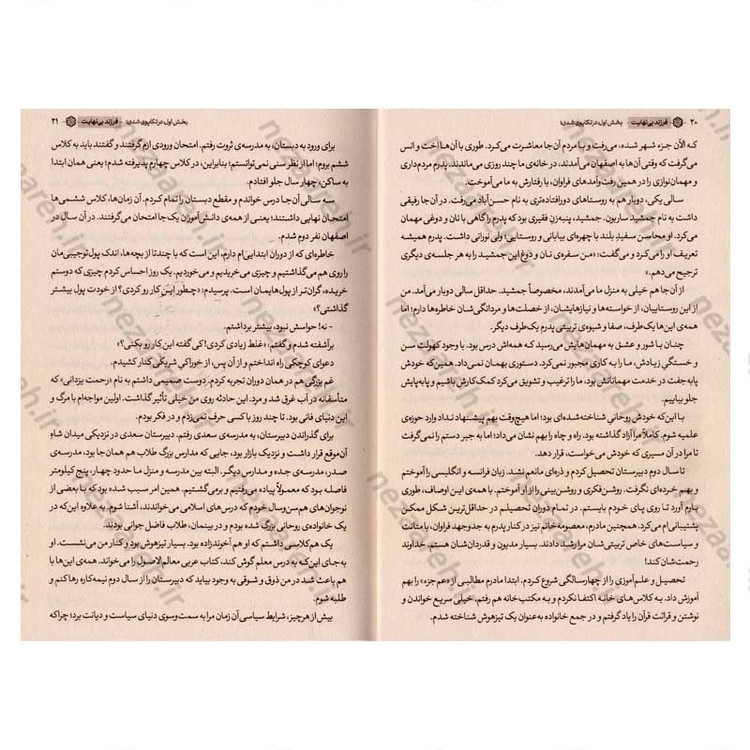 ۲۰ فرزند بی‌نهایت بخش اول: در تکاپوی شدن؛
که الآن جزء شهر شده، می‌رفت و با مردم آن‌جا معاشرت می‌کرد. طوری با آن‌ها اخت و انس
می‌گرفت که وقتی آن‌ها به اصفهان می‌آمدند، در خانه‌ی ما چند روزی می‌ماندند. پدرم مردم‌داری
و مهمان‌نوازی را در همین رفت‌وآمدهای فراوان، با رفتارش به ما می‌آموخت.
سالی یکی، دوبار هم به روستاهای دورافتاده‌تری به نام حسن‌آباد می‌رفت. در آن‌جا رفیقی
داشت به نام جمشید ساربون. جمشید، پنبه‌زنِ فقیری بود که پدرم را گاهی با نان و دوغی مهمان
می‌کرد. او محاسن سفیدِ بلند با چهره‌ای بیابانی و روستایی؛ ولی نورانی داشت. پدرم همیشه
تعریف او را می‌کرد و می‌گفت: «من سفره‌ی نان و دوغ این جمشید را به هر جلسه‌ی دیگری
ترجیح می‌دهم.»
از آن‌جا هم خیلی به منزل ما می‌آمدند، مخصوصاً جمشید. حداقل سالی دوبار می‌آمد. من
از این روستاییان، از خواسته‌ها و نیازهایشان، از خصلت‌ها و مردانگی‌شان خاطره‌ها دارم؛ اما
همه‌ی این‌ها یک‌طرف، صفا و شیوه‌ی تربیتی پدرم یک‌طرف دیگر.
چنان با شور و عشق به مهمان‌هایش می‌رسید که همه‌اش درس بود. با وجود کهولت سن
و خستگیِ زیادش، ما را به کاری مجبور نمی‌کرد. دستوری بهمان نمی‌داد. همین که خودش
پابه‌جفت در خدمت مهمانانش بود، ما را ترغیب و تشویق می‌کرد کمک‌کارش باشیم و پابه‌پایش
جلو بیاییم.
با این‌که خودش روحانیِ شناخته‌شده‌ای بود؛ اما هیچ‌وقت بهم پیشنهاد نداد وارد حوزه‌ی
علمیه شوم. کاملاً مرا آزاد گذاشته بود. راه و چاه را بهم نشان می‌داد؛ اما به جبر دستم را نمی‌گرفت
تا مرا در آن مسیری که خودش می‌خواست، قرار دهد.
تا سال دوم دبیرستان تحصیل کردم و ذره‌ای مانعم نشد. زبان فرانسه و انگلیسی را آموختم
و بهم خرده‌ای نگرفت. روشن‌فکری و روشن‌بینی را از او آموختم. با همه‌ی این اوصاف، طوری
بارم آورد تا روی پای خردم بایستم. در تمام دوران تحصیلم در حداقل‌ترین شکل ممکن
پشتیبانی‌ام می‌کرد. همچنین مادرم، معصومه‌خانم نیز در کنار پدرم به جد و جهد فراوان، با متانت
و سیاست‌های خاص تربیتی‌شان مرا رشد دادند. بسیار مدیون و قدردان‌شان هستم. خداوند
رحمت‌شان کند!
تحصیل و علم‌آموزی را از چهارسالگی شروع کردم. ابتدا مادرم مطالبی از «عم‌جزء» را بهم
آموزش داد. به کلاس‌های خانه اکتفا نکردم و به مکتب‌خانه هم رفتم. خیلی سریع خواندن و
نوشتن و قرائت قرآن را یاد گرفتم و در جمع خانواده به‌عنوان یک تیزهوش شناخته شدم.
بخش اول: در تکاپوی شدن؛ فرزند بی‌نهایت ۲۱
برای ورود به دبستان، به مدرسه‌ی ثروت رفتم. امتحان ورودی ازم گرفتند و گفتند باید به کلاس
ششم بروم؛ اما از نظر سنی نمی‌توانستم؛ بنابراین، در کلاس چهارم پذیرفته شدم؛ یعنی همان ابتدا
به ساکن، چهار سال جلو افتادم.
سه سالی آن‌جا درس خواندم و مقطع دبستان را تمام کردم. آن زمان‌ها، کلاس ششمی‌ها
امتحان نهایی داشتند؛ یعنی از همه‌ی دانش‌آموزان یک‌جا امتحان می‌گرفتند. در آن سال در
اصفهان نفر دوم شدم.
خاطره‌ای که از دوران ابتدایی‌ام دارم، این است که با چندتا از بچه‌ها، اندک پول توجیبی‌مان
را روی هم می‌گذاشتیم و چیزی می‌خریدیم و می‌خوردیم. یک روز احساس کردم چیزی که دوستم
خریده، گران‌تر از پول‌هایمان است. پرسیدم: «چطور این کار رو کردی؟ از خودت پول بیشتر
گذاشتی؟»
- نه! حواسش نبود، بیشتر برداشتم.
برآشفته شدم و گفتم: «غلط زیادی کردی! کی گفته این کار رو بکنی؟»
دعوای کوچکی راه انداختم و از آن پس، از خوراکیِ شریکی کنار کشیدم.
غم بزرگی هم در همان دوران تجربه کردم. دوست صمیمی داشتم به نام «رحمت یزدانی» که
متأسفانه در آب غرق شد و مُرد. این حادثه روی من خیلی تأثیر گذاشت. اولین مواجه‌ام با مرگ و
این دنیای فانی بود. تا چند روز با کسی حرف نمی‌زدم و در فکر بودم.
برای گذراندن دبیرستان، به مدرسه‌ی سعدی رفتم. دبیرستان سعدی در نزدیکی میدان شاهِ
آن‌موقع قرار داشت و نزدیک بازار بود، جایی که مدارس بزرگ طلاب هم همان‌جا بود، مدرسه‌ی
صدر، مدرسه‌ی جده و مدارس دیگر. البته بین مدرسه و منزل ما حدود چهار، پنج کیلومتر
فاصله بود که معمولاً پیاده می‌رفتیم و برمی‌گشتیم. همین امر سبب شده بود که با بعضی از
نوجوان‌های هم‌سن‌وسال خودم که درس‌های اسلامی می‌خواندند، آشنا شوم. به علاوه این‌که در
یک خانواده‌ی روحانی بزرگ شده بودم و در بینمان، طلاب فاضل جوانی بودند.
یک هم‌کلاسی داشتم که او هم آخوندزاده بود. بسیار تیزهوش بود و کنار من می‌نشست. او
به جای این‌که به درس معلم گوش کند، کتاب عربی معالم‌الاصول را می‌خواند. همه‌ی این‌ها با
هم باعث شد در من ذوق و شوقی به وجود بیاید که دبیرستان را از سال دوم نیمه‌کاره رها کنم و
طلبه شوم.
بیش از هرچیز، شرایط سیاسی آن زمان مرا به سمت‌وسوی دنیای سیاست و دیانت برد؛ چراکه
nezaareh.ir